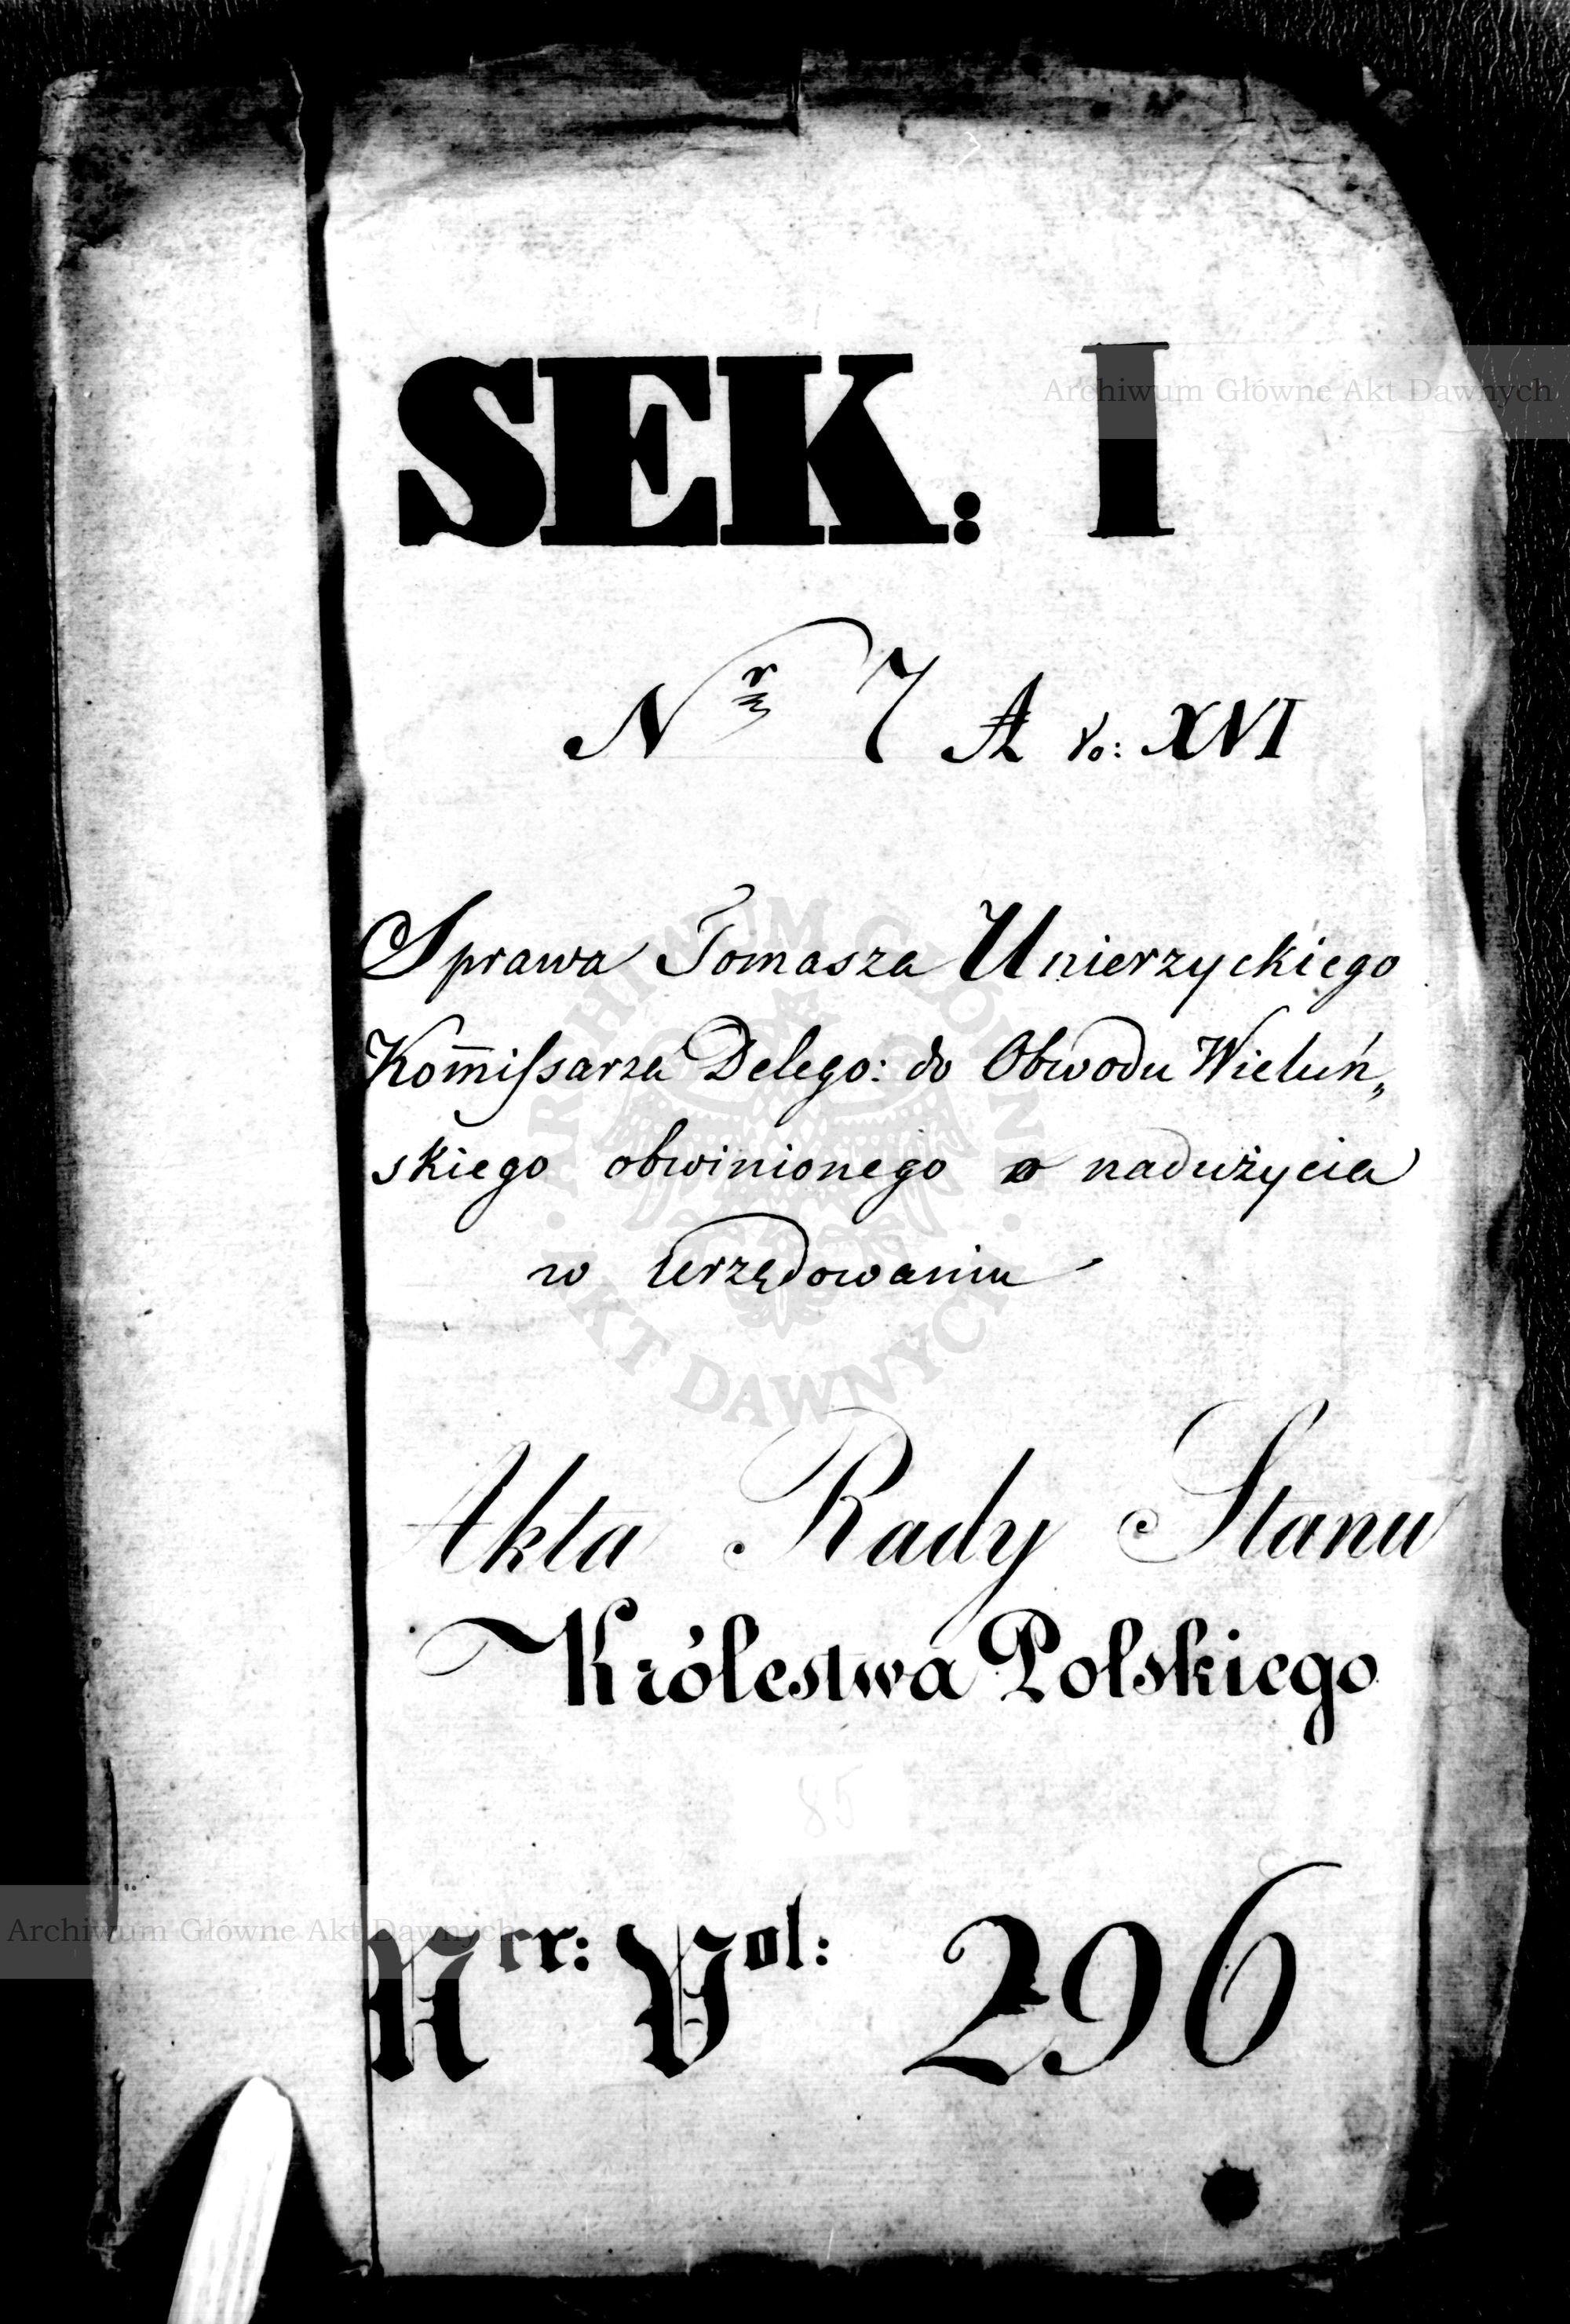 SEK: I
Archiwum Główne Akt Dawnych
Nr 7 A v: XVI
Sprawa Tomasza Unierzyckiego
Kom̅ifsarza Delego: do Obwodu Wieluń„
skiego obwinionego o nadużycia
w Urzędowaniu
ARCHIWUM GŁÓWNE · AKT DAWNYCH ·
Akta Rady Stanu
Królestwa Polskiego
85
Archiwum Główne Akt Dawnych
Ner: Vol: 296